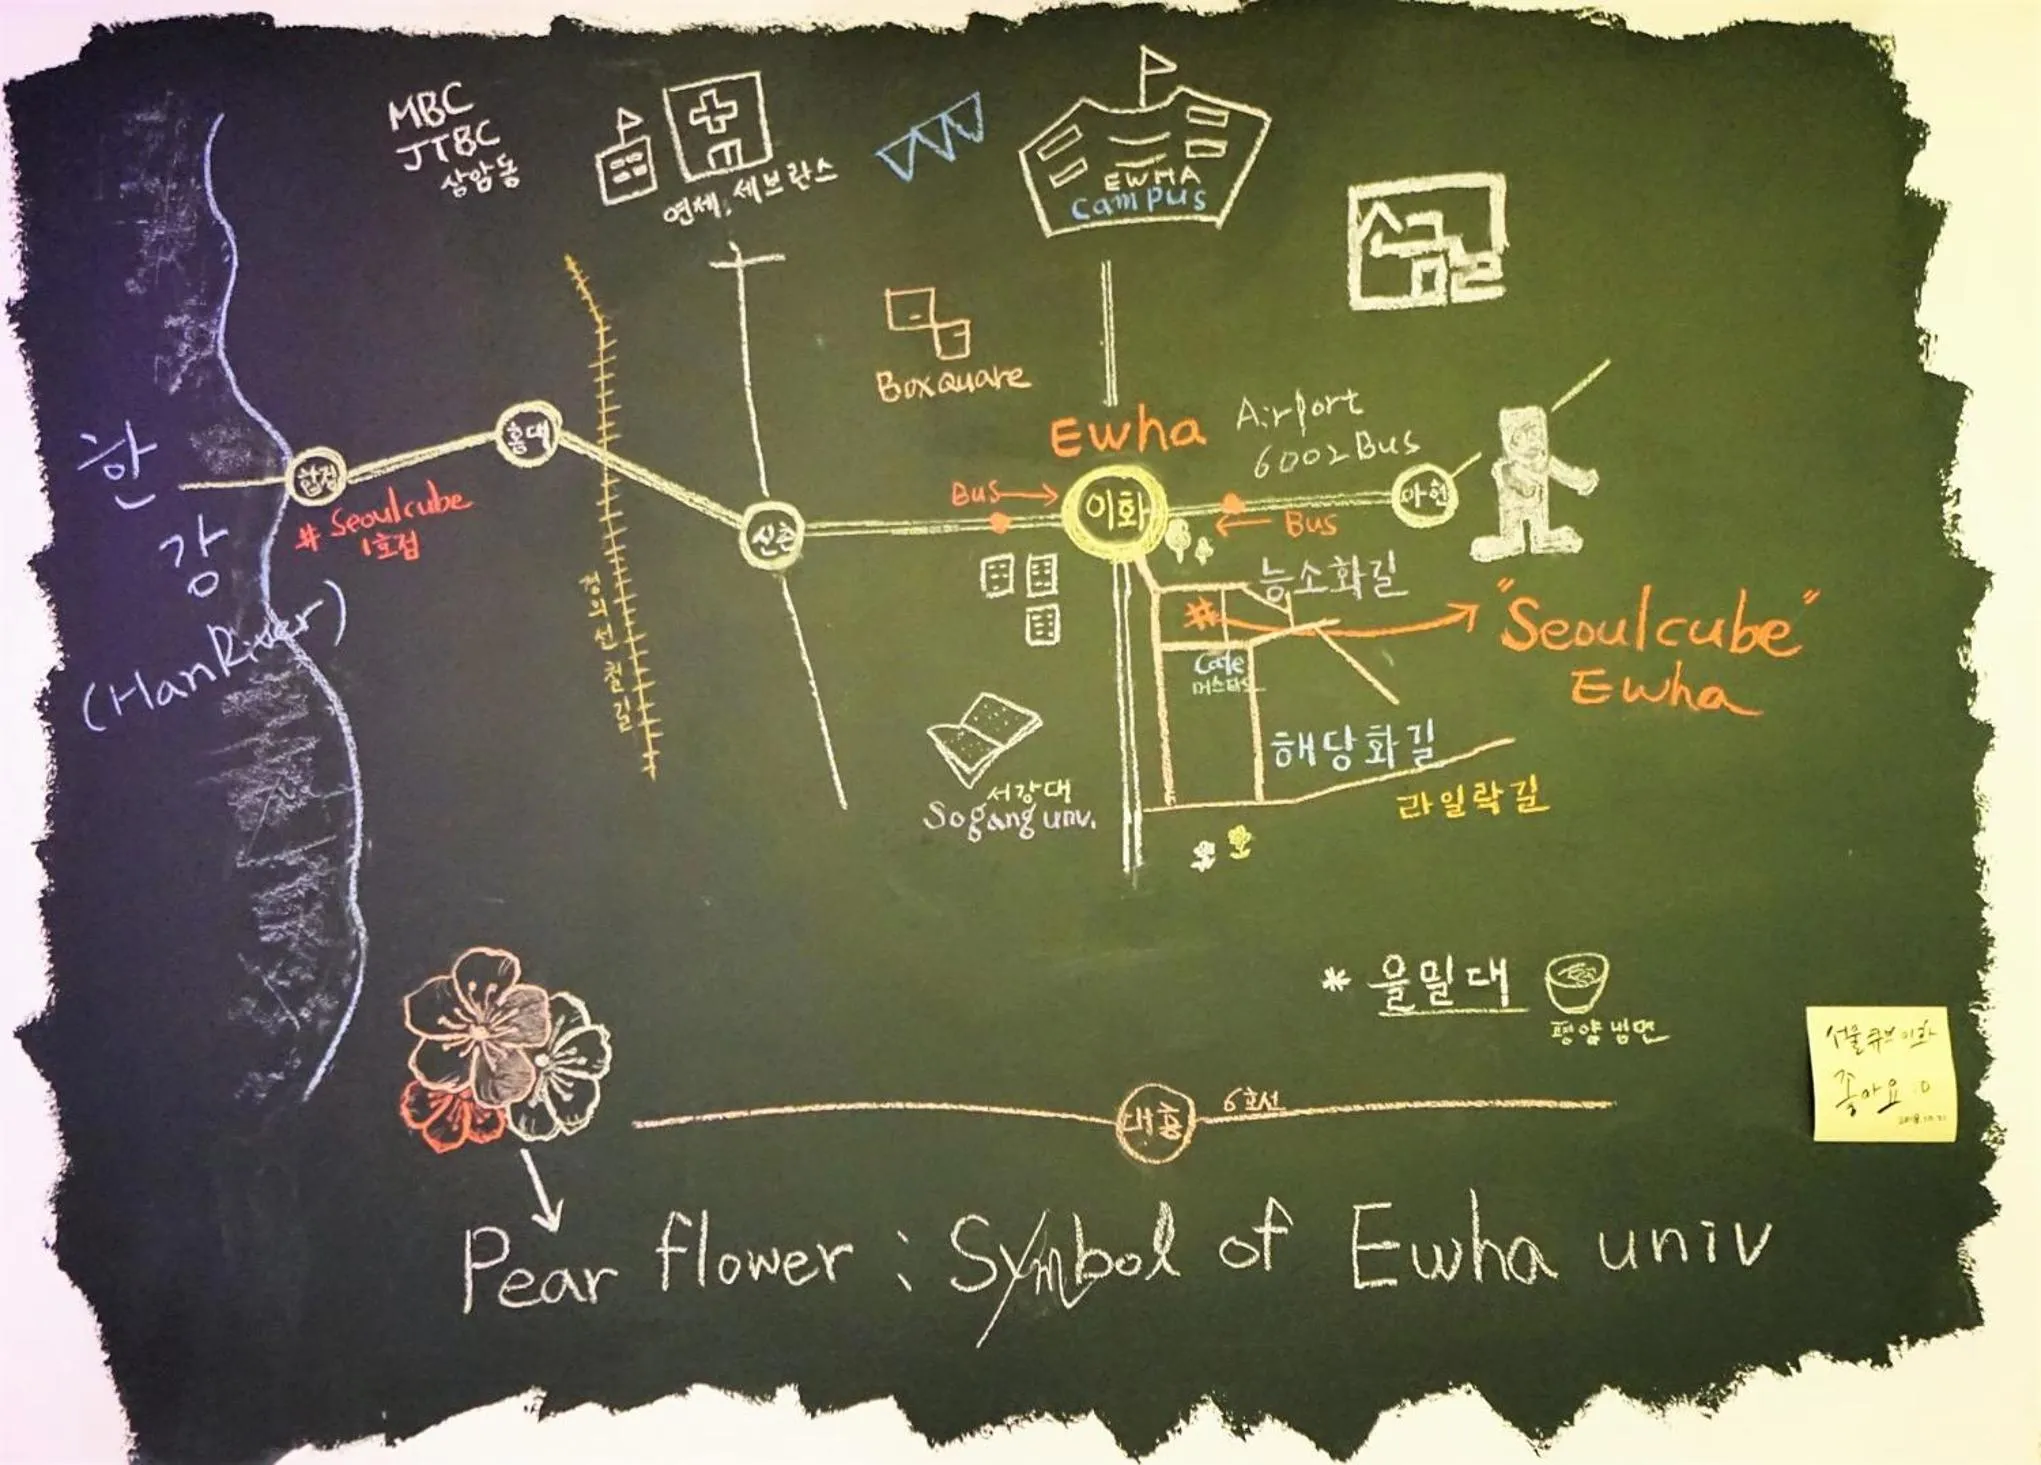 MBC
JTBC
상암동
연세, 세브란스
EWHA
campus
Boxquare
Ewha
Airport
6002 Bus
한
강
(HanRiver)
합정
홍대
# Seoulcube
1호점
경의선 철길
신촌
Bus
이화
Bus
아현
능소화길
#
"Seoulcube"
Ewha
Cafe
머스타드
해당화길
라일락길
서강대
Sogang univ.
* 을밀대
평양냉면
대흥
6호선
서울큐브 이화
좋아요 :D
2018.10.21
Pear flower : Symbol of Ewha univ